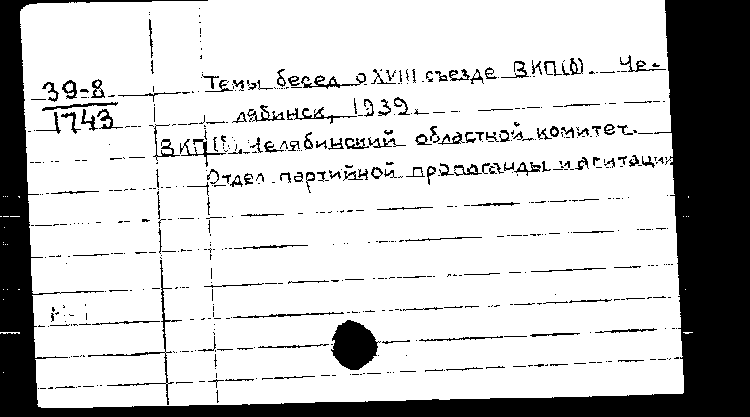 Темы бесед о XVIII съезде ВКП(б). Че-
39-8
лябинск, 1939.
1743
ВКП(б). Челябинский областной комитет.
Отдел партийной пропаганды и агитации